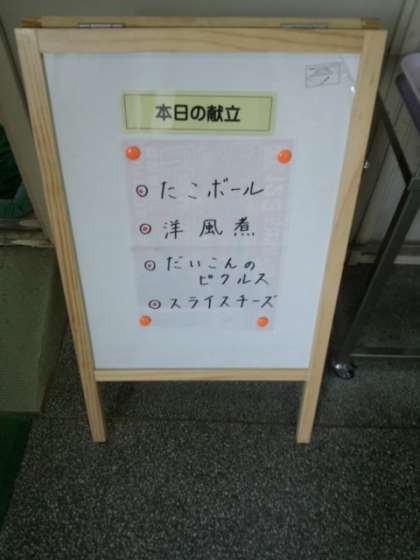 本日の献立
◎ たこボール
◎ 洋風煮
◎ だいこんの
ピクルス
◎ スライスチーズ